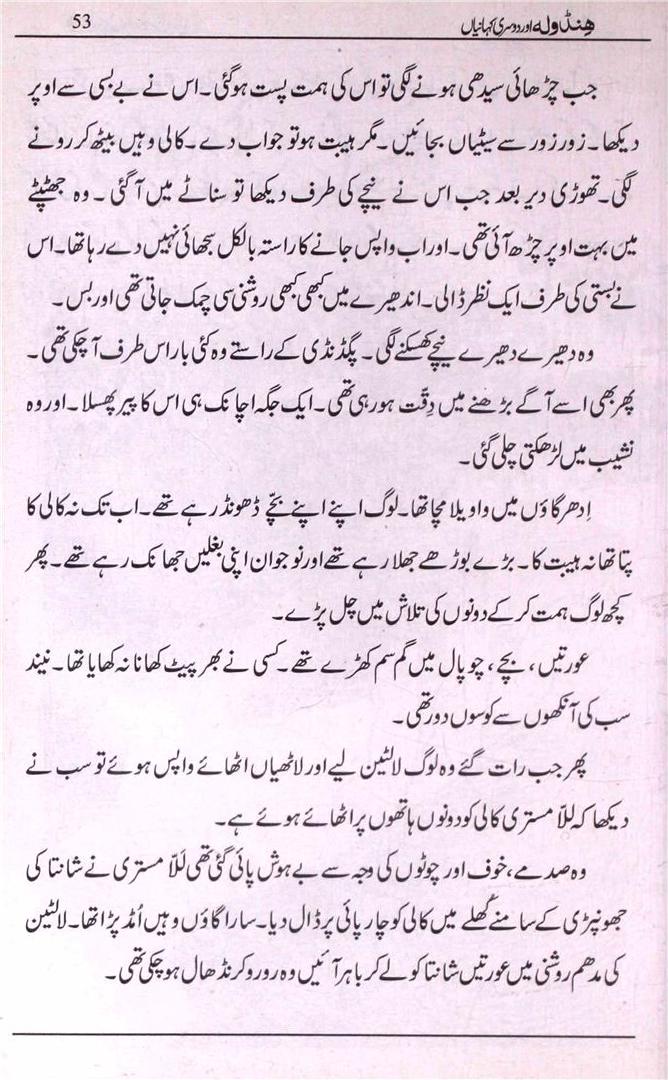 ہنڈولہ اور دوسری کہانیاں 53
جب چڑھائی سیدھی ہونے لگی تو اس کی ہمت پست ہوگئی۔ اس نے بے بسی سے اوپر
دیکھا۔ زور زور سے سیٹیاں بجائیں۔ مگر ہیبت ہو تو جواب دے۔ کالی وہیں بیٹھ کر رونے
لگی۔ تھوڑی دیر بعد جب اس نے نیچے کی طرف دیکھا تو سناٹے میں آگئی۔ وہ جھٹپٹے
میں بہت اوپر چڑھ آئی تھی۔ اور اب واپس جانے کا راستہ بالکل سجھائی نہیں دے رہا تھا۔ اس
نے بستی کی طرف ایک نظر ڈالی۔ اندھیرے میں کبھی کبھی روشنی سی چمک جاتی تھی اور بس۔
وہ دھیرے دھیرے نیچے کھسکنے لگی۔ پگڈنڈی کے راستے وہ کئی بار اس طرف آچکی تھی۔
پھر بھی اسے آگے بڑھنے میں دِقّت ہو رہی تھی۔ ایک جگہ اچانک ہی اس کا پیر پھسلا۔ اور وہ
نشیب میں لڑھکتی چلی گئی۔
اِدھر گاؤں میں واویلا مچا تھا۔ لوگ اپنے اپنے بچّے ڈھونڈ رہے تھے۔ اب تک نہ کالی کا
پتا تھا نہ ہیبت کا۔ بڑے بوڑھے جھلا رہے تھے اور نوجوان اپنی بغلیں جھانک رہے تھے۔ پھر
کچھ لوگ ہمت کرکے دونوں کی تلاش میں چل پڑے۔
عورتیں، بچے، چوپال میں گم سم کھڑے تھے۔ کسی نے بھر پیٹ کھانا نہ کھایا تھا۔ نیند
سب کی آنکھوں سے کوسوں دور تھی۔
پھر جب رات گئے وہ لوگ لالٹین لیے اور لاٹھیاں اٹھائے واپس ہوئے تو سب نے
دیکھا کہ للّا مستری کالی کو دونوں ہاتھوں پر اٹھائے ہوئے ہے۔
وہ صدمے، خوف اور چوٹوں کی وجہ سے بے ہوش پائی گئی تھی للّا مستری نے شانتا کی
جھونپڑی کے سامنے کُھلے میں کالی کو چارپائی پر ڈال دیا۔ سارا گاؤں وہیں اُمڈ پڑا تھا۔ لالٹین
کی مدھم روشنی میں عورتیں شانتا کو لے کر باہر آئیں وہ رو رو کر نڈھال ہوچکی تھی۔